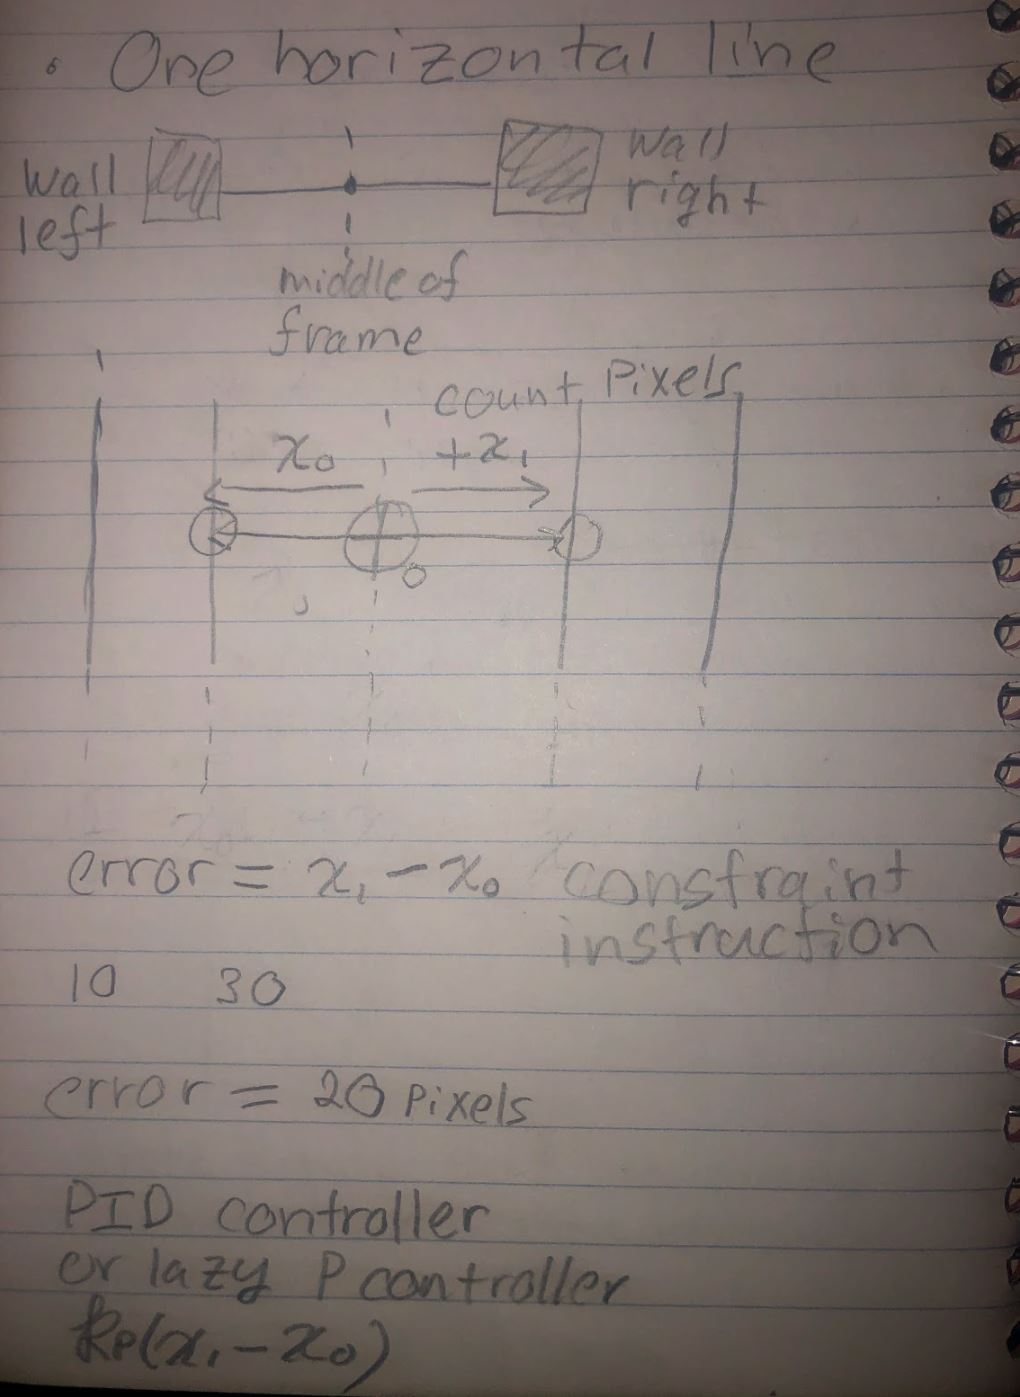 • One horizontal line
Wall left
Wall right
middle of
frame
count Pixels
x₀ +x₁
0
error = x₁ - x₀ constraint
instruction
10 30
error = 20 Pixels
PID controller
or lazy P controller
kp(x₁ - x₀)